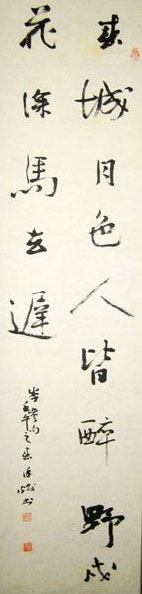 春城月色人皆醉野戍
花深馬去遲
岑參句